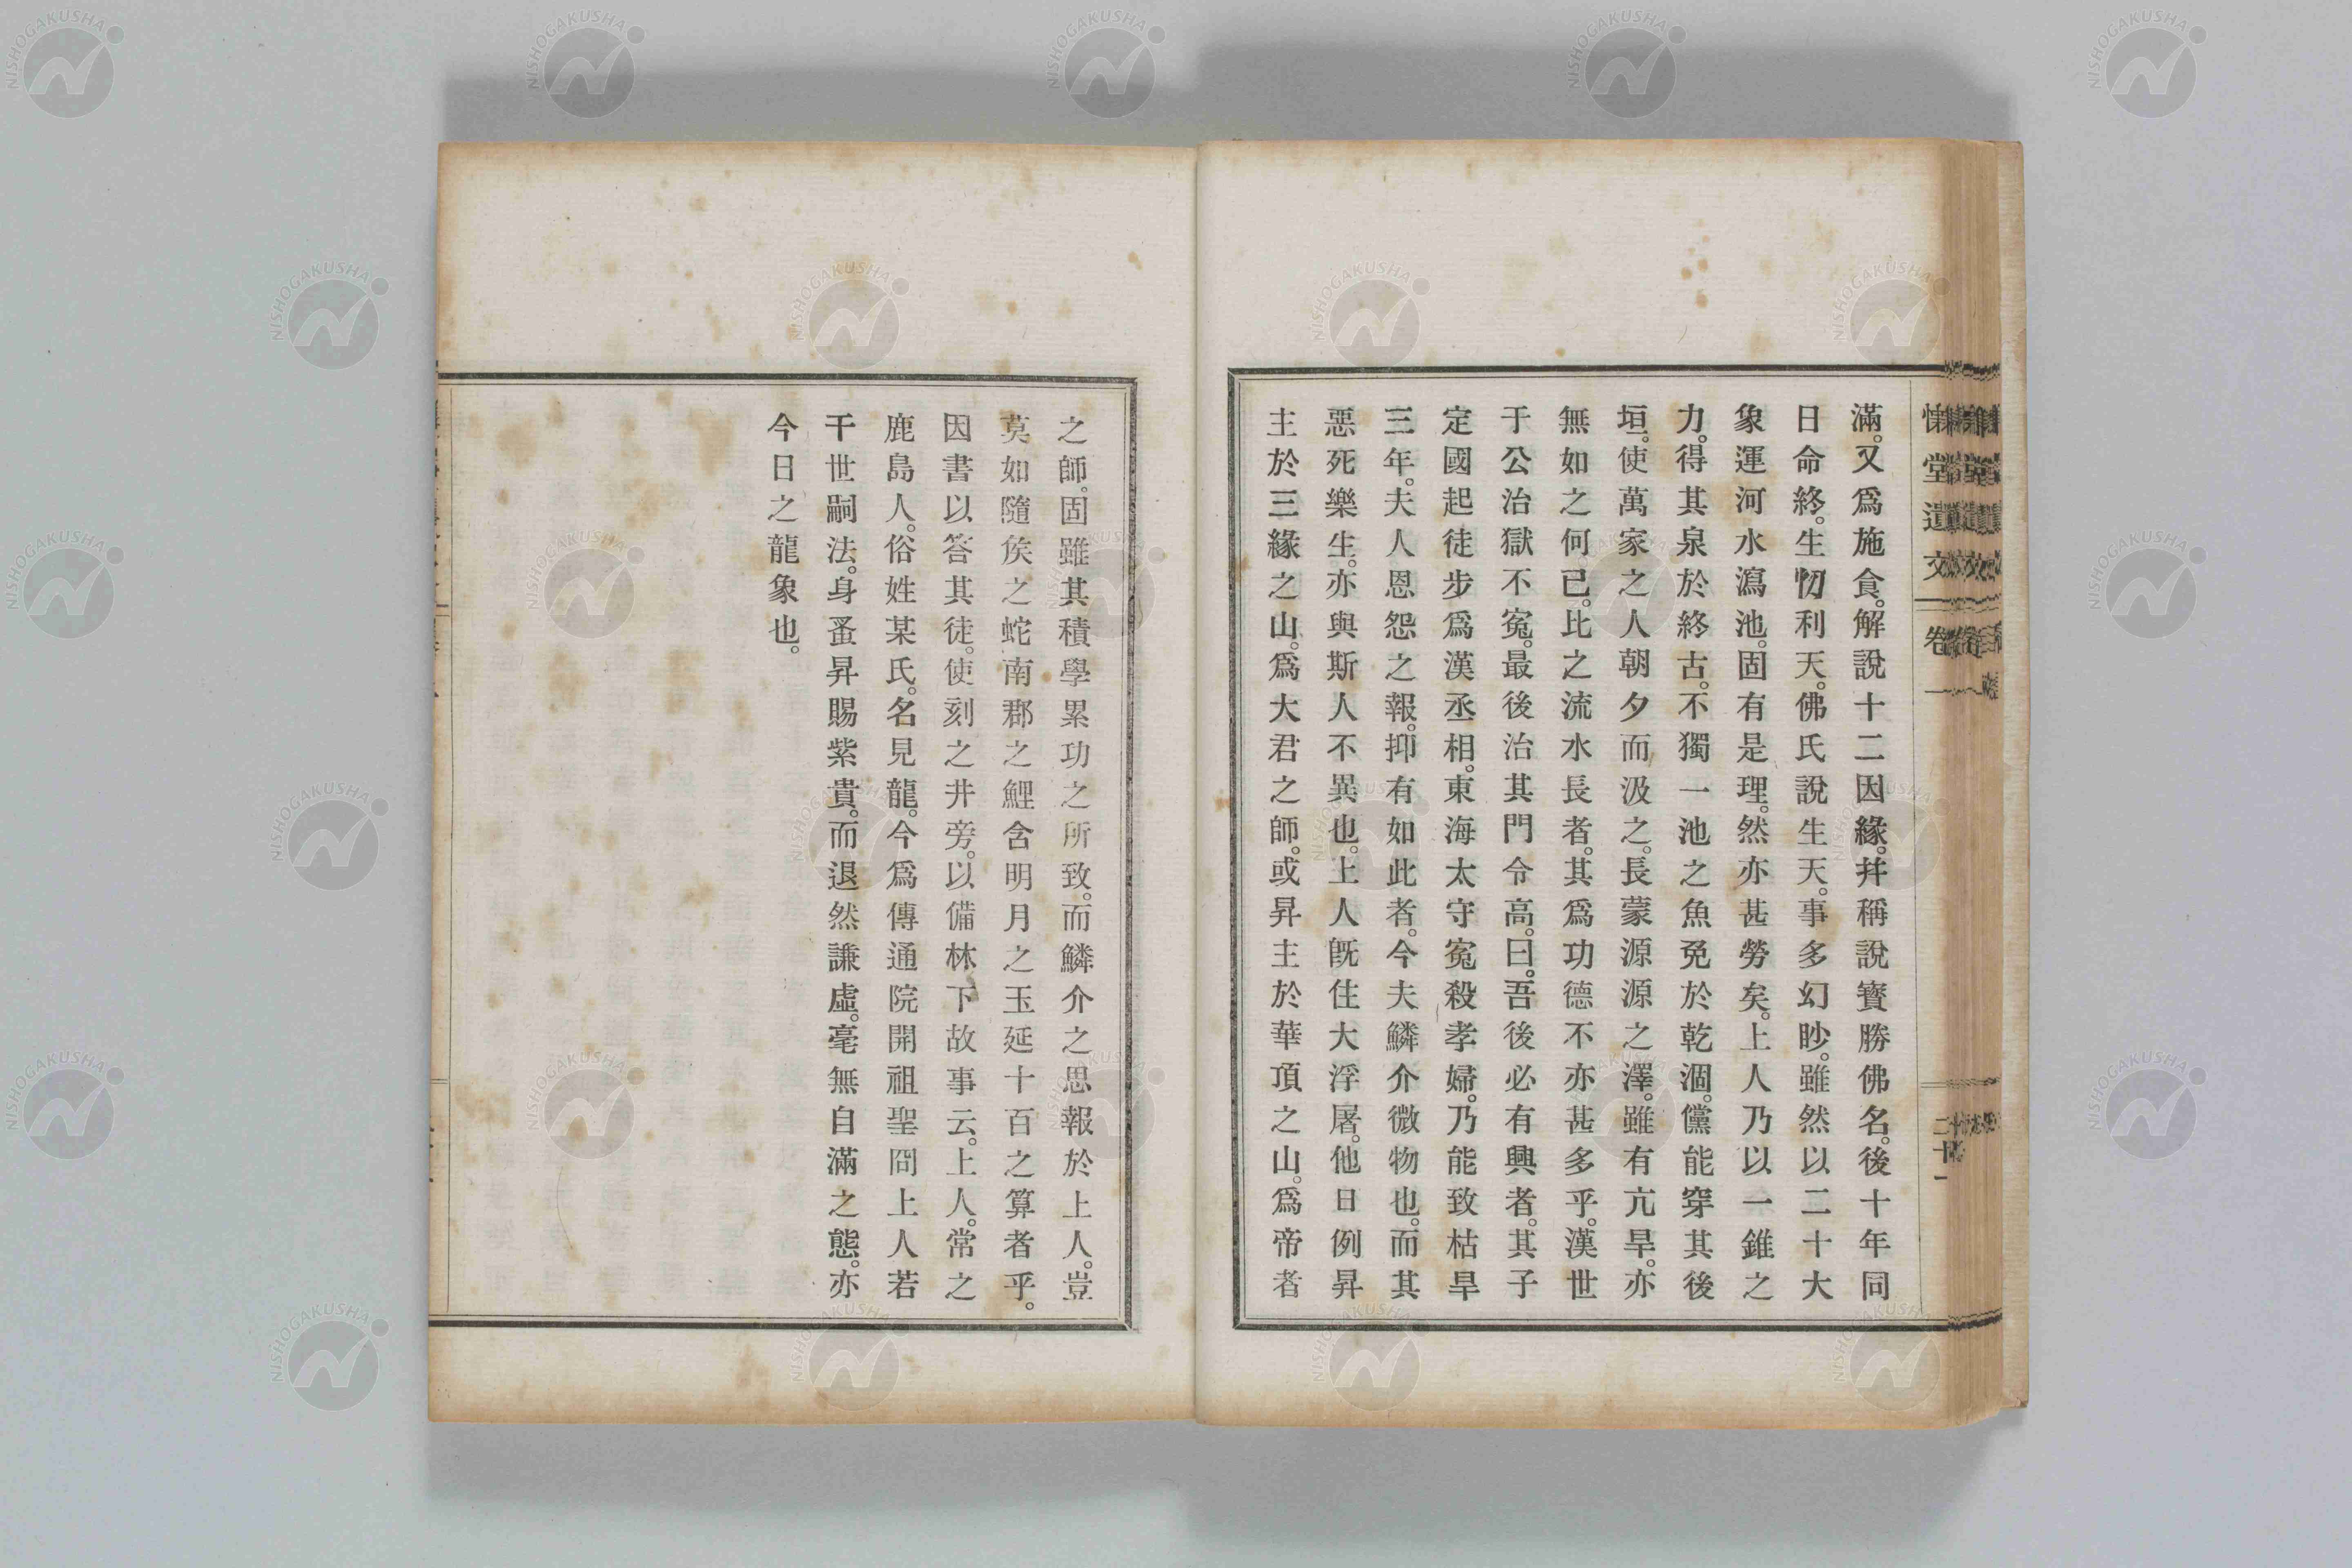 滿。又爲施食。解說十二因緣。幷稱說寶勝佛名。後十年同
日命終。生忉利天。佛氏說生天。事多幻眇。雖然以二十大
象運河水瀉池。固有是理。然亦甚勞矣。上人乃以一錐之
力。得其泉於終古。不獨一池之魚免於乾涸。儻能穿其後
垣。使萬家之人朝夕而汲之。長蒙源源之澤。雖有亢旱。亦
無如之何已。比之流水長者。其爲功德不亦甚多乎。漢世
于公治獄不冤。最後治其門令高。曰。吾後必有興者。其子
定國起徒步爲漢丞相。東海太守寃殺孝婦。乃能致枯旱
三年。夫人恩怨之報。抑有如此者。今夫鱗介微物也。而其
惡死樂生。亦與斯人不異也。上人旣住大浮屠。他日例昇
主於三緣之山。爲大君之師。或昇主於華頂之山。爲帝者
之師。固雖其積學累功之所致。而鱗介之思報於上人。豈
莫如隨矦之蛇南郡之鯉含明月之玉延十百之算者乎。
因書以答其徒。使刻之井旁。以備林下故事云。上人。常之
鹿島人。俗姓某氏。名見龍。今爲傳通院開祖聖冏上人若
干世嗣法。身蚤昇賜紫貴。而退然謙虛。毫無自滿之態。亦
今日之龍象也。